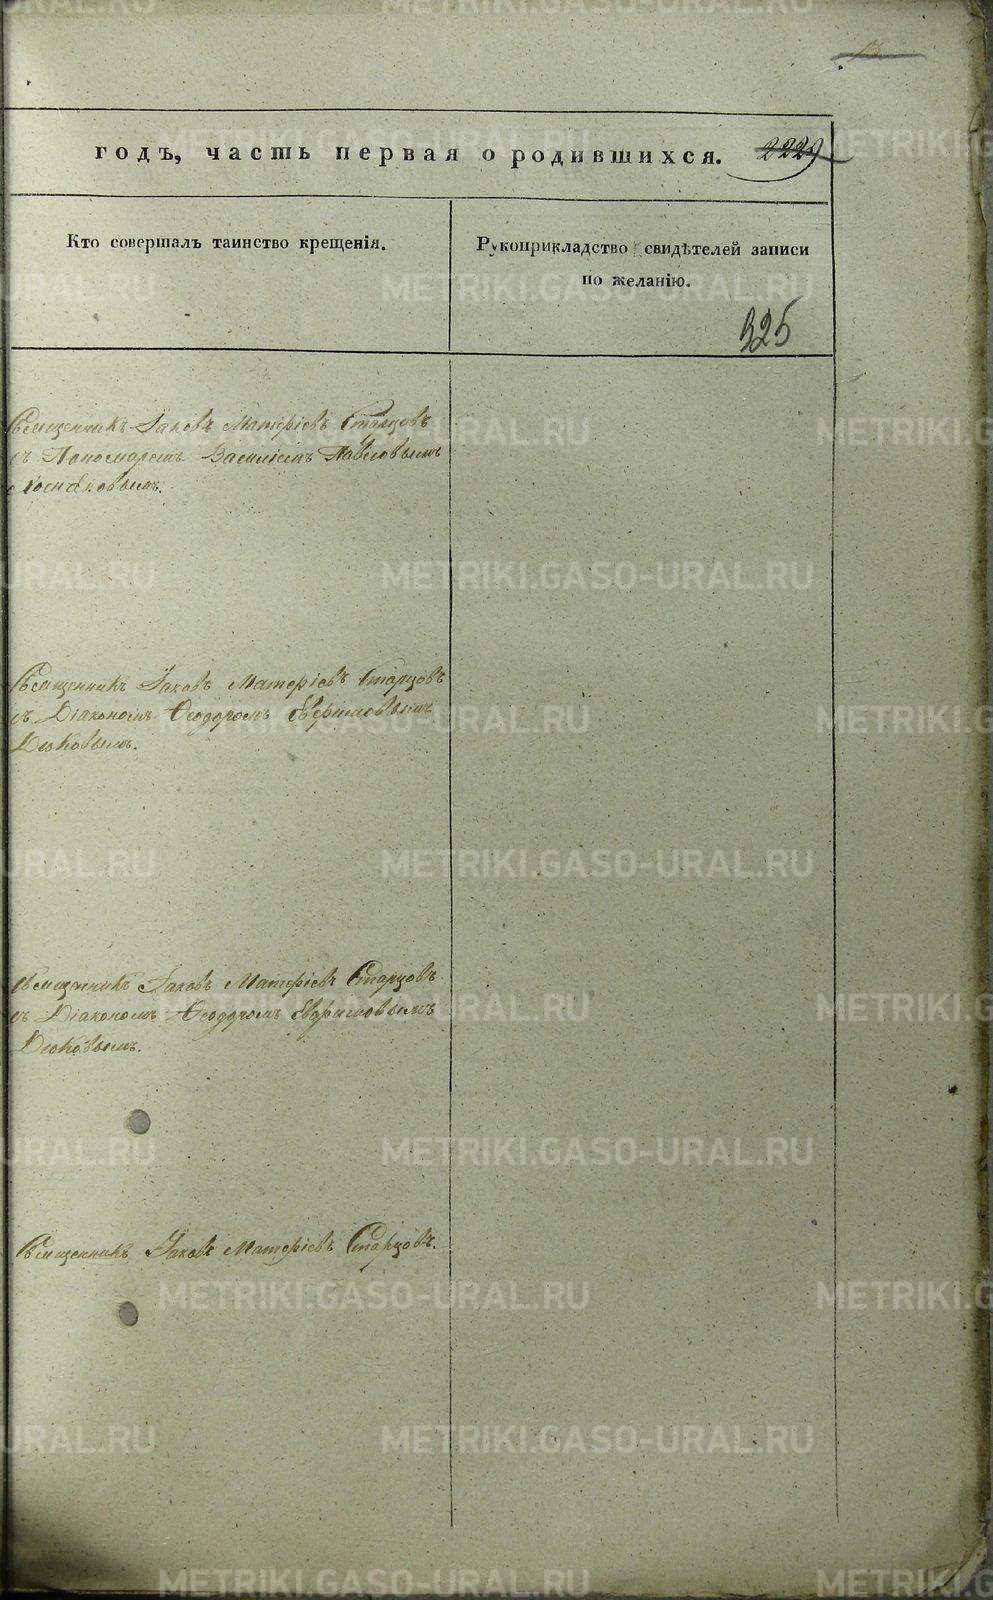 13
годъ, часть первая о родившихся. 2229
Кто совершалъ таинство крещенія.
Рукоприкладство свидѣтелей записи
по желанію.
325
Священникъ Іаковъ Матѳіевъ Старцовъ
съ Пономаремъ Василіемъ Павловымъ
Священникъ Іаковъ Матѳіевъ Старцовъ
съ Діакономъ Ѳеодоромъ Евфимовымъ
Священникъ Іаковъ Матѳіевъ Старцовъ
съ Діакономъ Ѳеодоромъ Евфимовымъ
Священникъ Іаковъ Матѳіевъ Старцовъ.
METRIKI.GASO-URAL.RU